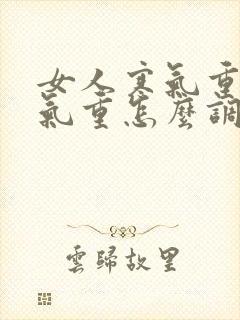 女人寒氣重
氣重怎麼調
雲歸故里